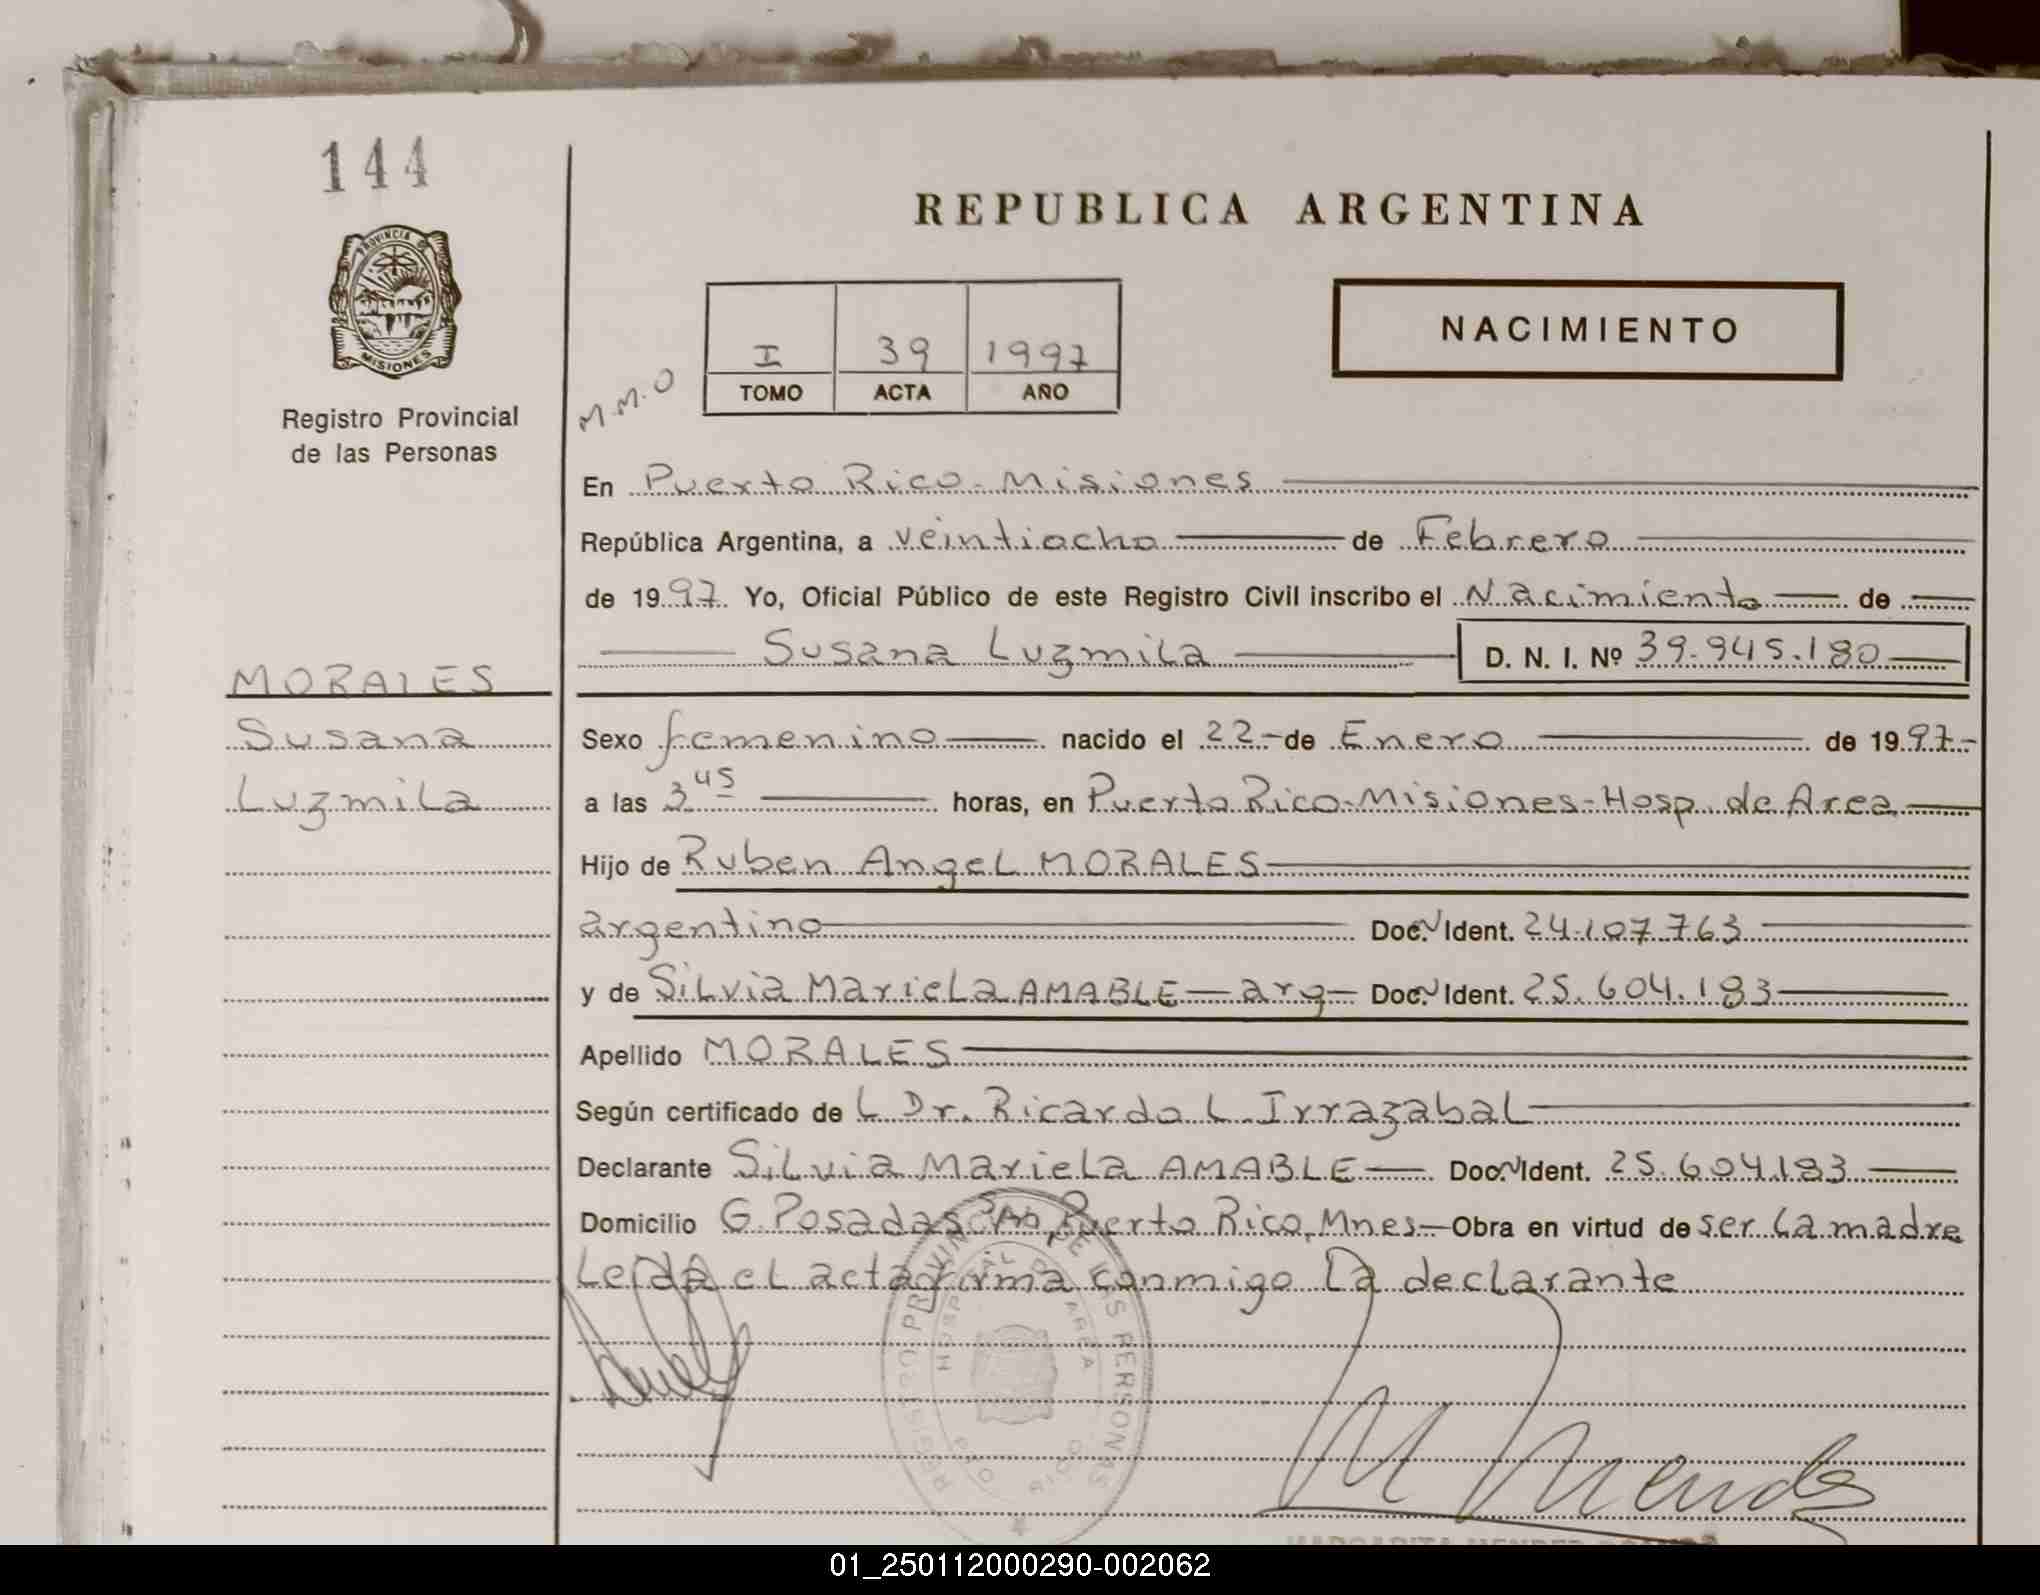 144
PROVINCIA DE
MISIONES
Registro Provincial
de las Personas
REPUBLICA ARGENTINA
NACIMIENTO
I 39 1997
TOMO ACTA AÑO
M.M.O
En Puerto Rico-Misiones
República Argentina, a veintiocho de Febrero
de 1997 Yo, Oficial Público de este Registro Civil inscribo el Nacimiento de
Susana Luzmila D. N. I. Nº 39.945.180
MORALES
Susana
Luzmila
Sexo femenino nacido el 22-de Enero de 1997-
a las 3 45 horas, en Puerto Rico-Misiones-Hosp. de Area
Hijo de Ruben Angel MORALES
argentino Doc. Ident. 24.107.763
y de Silvia Mariela AMABLE - arg - Doc. Ident. 25.604.183
Apellido MORALES
Según certificado de L Dr. Ricardo L. Irrazabal
Declarante Silvia Mariela AMABLE Doc. Ident. 25.604.183
Domicilio G. Posadas Puerto Rico, Mnes- Obra en virtud de ser la madre
Leida el acta firma conmigo la declarante
REGISTRO PROVINCIAL DE LAS PERSONAS
HOSPITAL DE AREA
PTO RICO
M Mendez
01_250112000290-002062